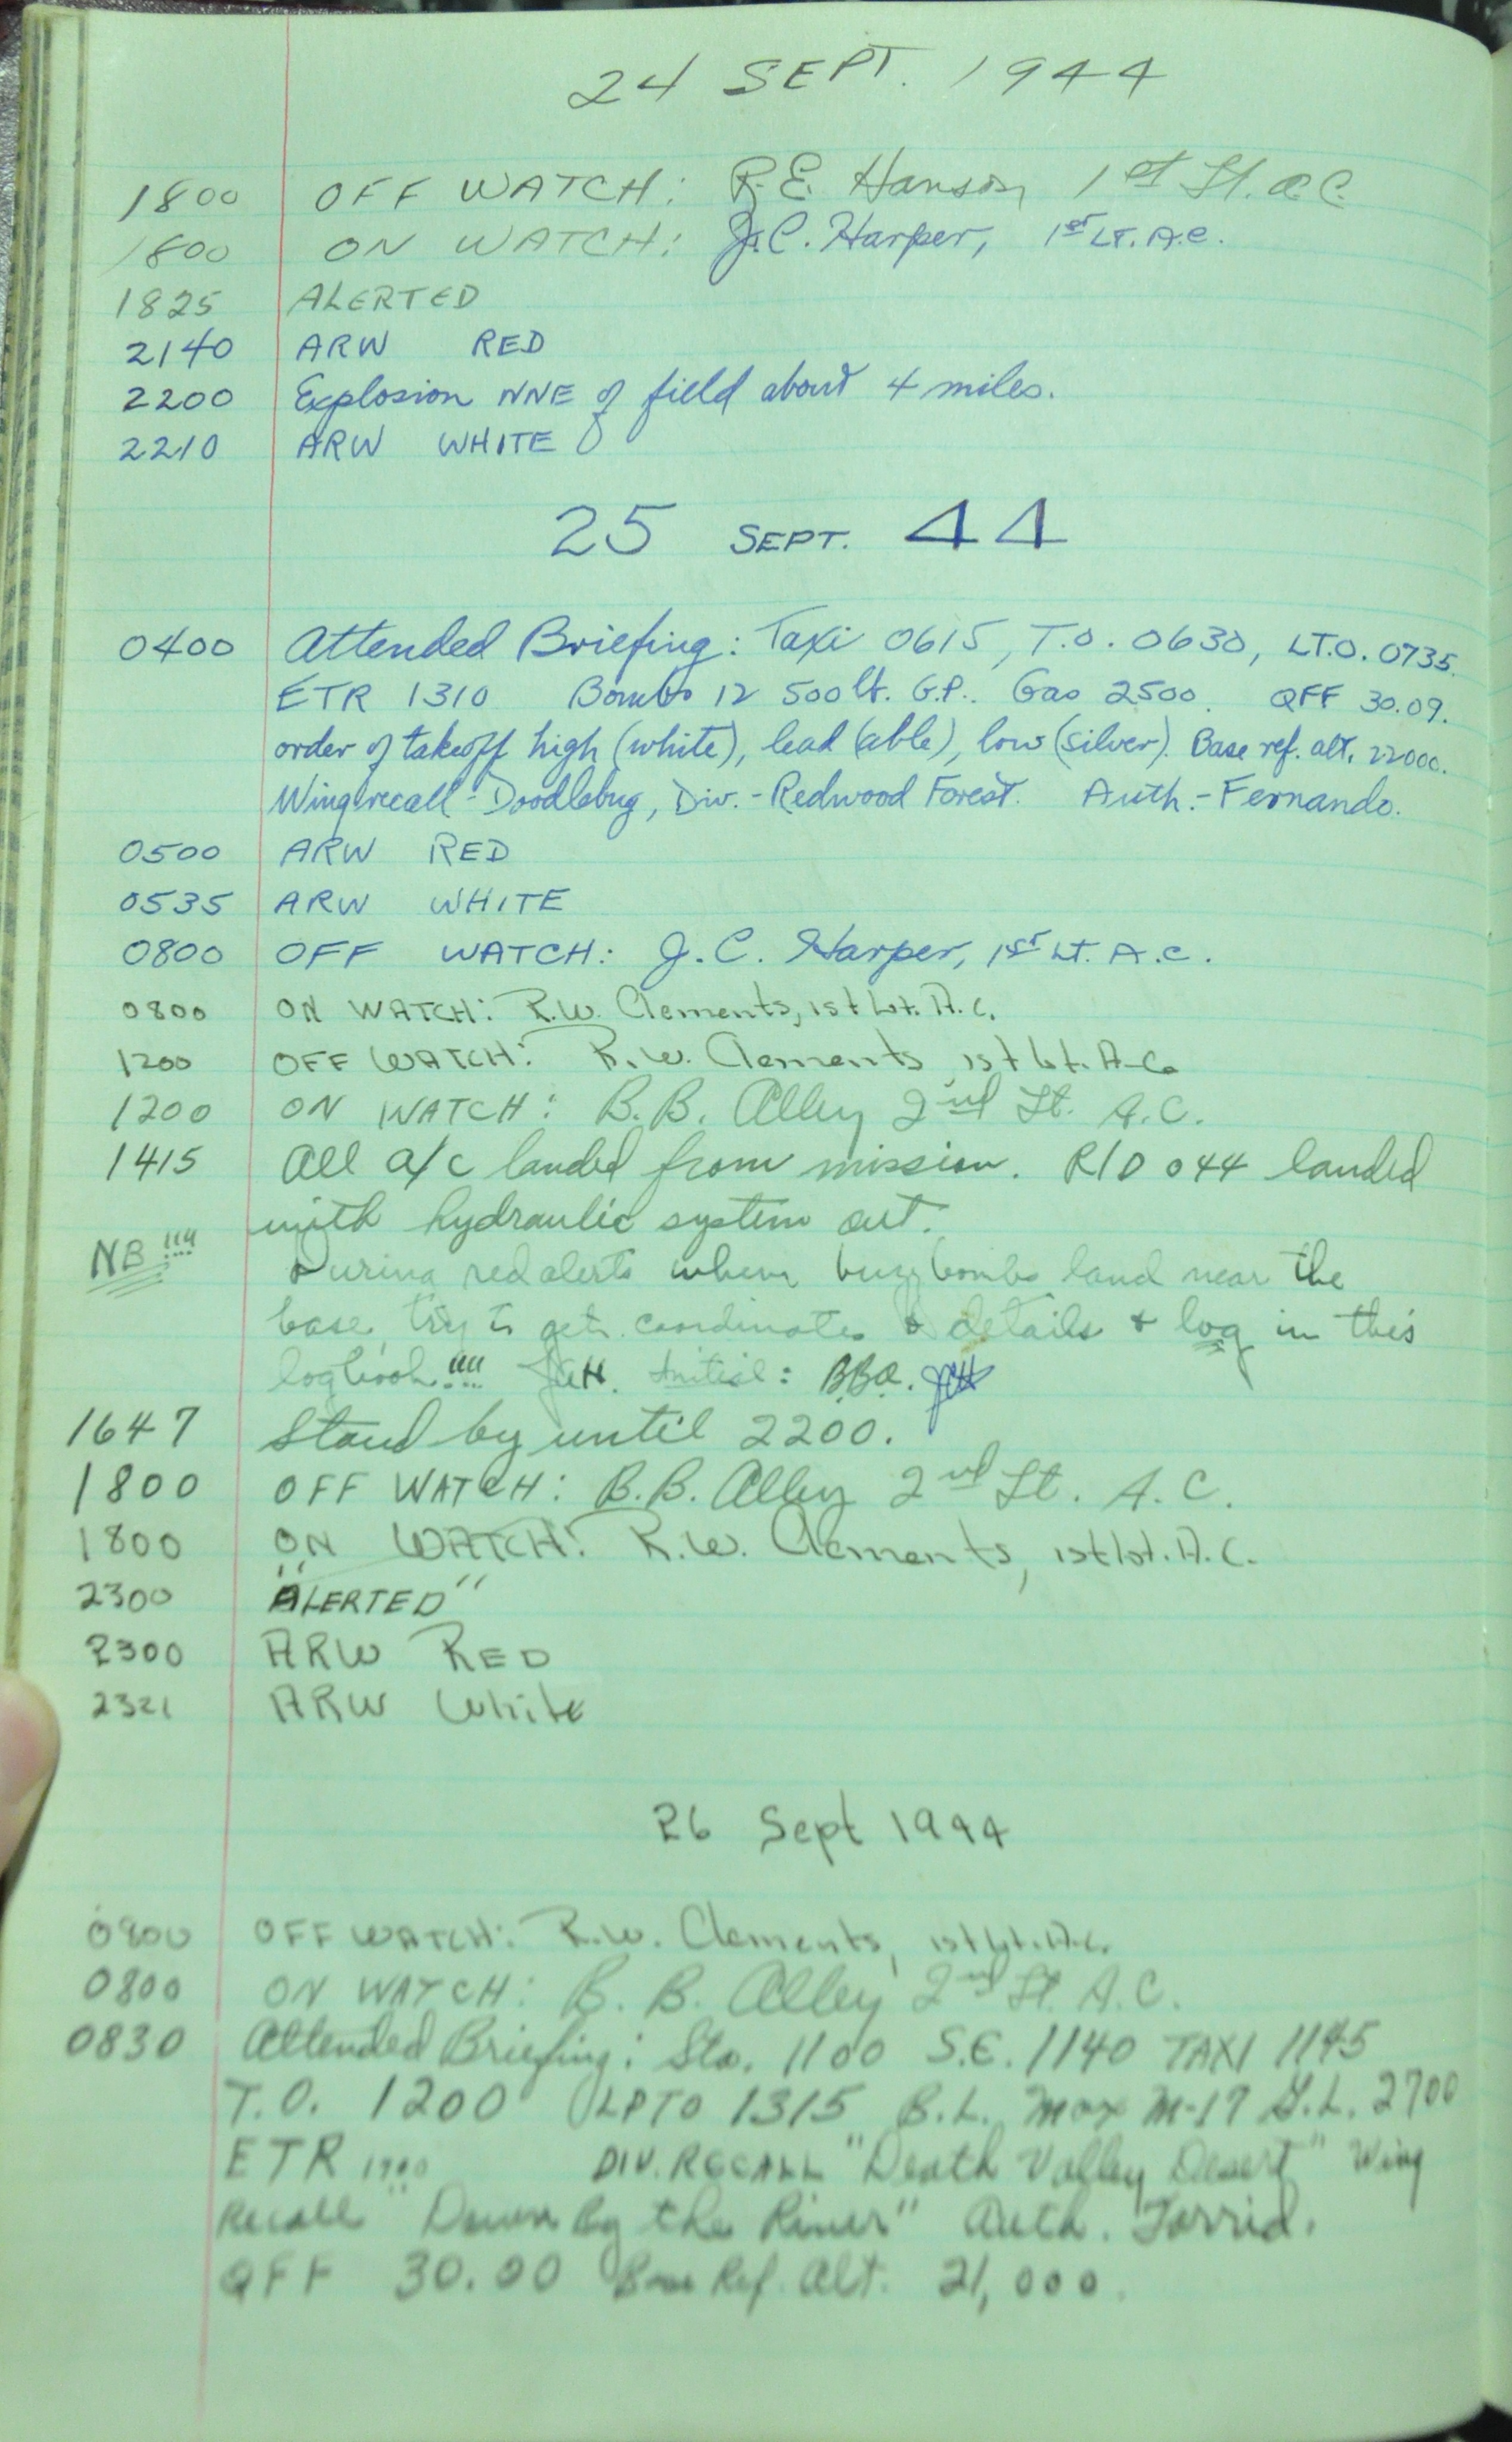 24 SEPT. 1944
1800 OFF WATCH: R.E. Hanson, 1st Lt. A.C.
1800 ON WATCH: J.C. Harper, 1st LT. A.C.
1825 ALERTED
2140 ARW RED
2200 Explosion NNE of field about 4 miles.
2210 ARW WHITE
25 SEPT. 44
0400 Attended Briefing: Taxi 0615, T.O. 0630, LT.O. 0735.
ETR 1310 Bombs 12 500 lb. G.P. Gas 2500. QFF 30.09.
order of takeoff high (white), lead (able), low (silver). Base ref. alt. 22000.
Wing recall - Doodlebug, Div. - Redwood Forest. Auth. - Fernando.
0500 ARW RED
0535 ARW WHITE
0800 OFF WATCH: J.C. Harper, 1st LT. A.C.
0800 ON WATCH: R.W. Clements, 1st Lt. A.C.
1200 OFF WATCH: R.W. Clements 1st Lt. A.C.
1200 ON WATCH: B.B. Alley 2nd Lt. A.C.
1415 All a/c landed from mission. R/D 044 landed
with hydraulic system out.
NB !!!! During red alerts when buzz bombs land near the
base, try to get coordinates & details & log in this
logbook !!!! Initial: B.B.A. JCH
1647 Stand by until 2200.
1800 OFF WATCH: B.B. Alley 2nd Lt. A.C.
1800 ON WATCH: R.W. Clements, 1st Lt. A.C.
2300 "ALERTED"
2300 ARW RED
2321 ARW White
26 Sept 1944
0800 OFF WATCH: R.W. Clements, 1st Lt. A.C.
0800 ON WATCH: B.B. Alley 2nd Lt. A.C.
0830 Attended Briefing: Sta. 1100 S.E. 1140 TAXI 1145
T.O. 1200 LPTO 1315 B.L. Max M-17 G.L. 2700
ETR DIV. RECALL "Death Valley Desert" Wing
Recall "Down By the River" Auth. Torrid.
QFF 30.00 Base Ref. Alt. 21,000.